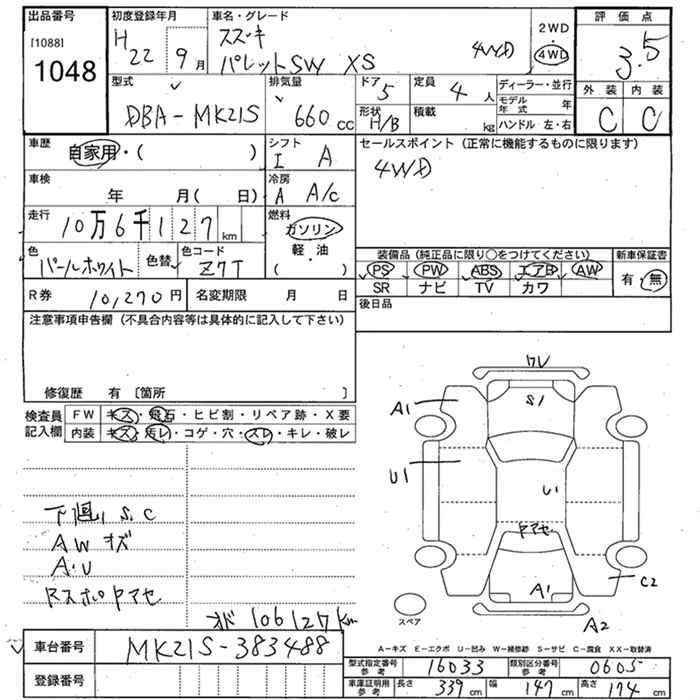 出品番号
[1088]
1048
初度登録年月
H 22 9月
車名・グレード
スズキ
パレットSW XS 4WD
2WD
・
4WD
評価点
3.5
外装 内装
C C
型式
DBA-MK21S
排気量
660 cc
ドア 5
形状 H/B
定員 4 人
積載 kg
ディーラー・並行
モデル年式 年
ハンドル 左・右
車歴
自家用・( )
シフト
I A
車検
年 月( 日)
冷房
A A/c
走行
10万6千127 km
燃料
ガソリン
軽・油
( )
色
パールホワイト
色替
色コード
Z7T
R券 10,270円
名変期限 月 日
セールスポイント(正常に機能するものに限ります)
4WD
装備品(純正品に限り○をつけてください)
新車保証書
PS PW ABS エアB AW
有・無
SR ナビ TV カワ
後日品
注意事項申告欄(不具合内容等は具体的に記入して下さい)
修復歴 有〔箇所 〕
検査員記入欄
FW キズ・飛石・ヒビ割・リペア跡・X要
内装 キズ・汚レ・コゲ・穴・スレ・キレ・破レ
下廻り S.C
AW キズ
A.U
Rスポ ヤマセ
オド 106127km
ワレ
S1
A1
U1
U1
ヤマセ
A1
C2
A2
スペア
A-キズ E-エクボ U-凹み W-補修跡 S-サビ C-腐食 XX-取替済
車台番号 MK21S-383488
登録番号
型式指定番号 参考 16033
類別区分番号 参考 0605
車庫証明用 参考 長さ 339cm 幅 147cm 高さ 174cm